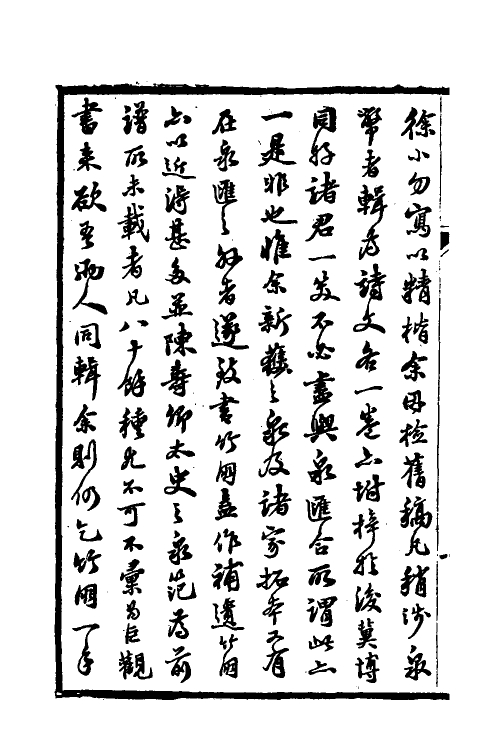 徐小勿寫以精楷余因檢舊稿凡稍涉泉
幣者輯為詩文各一卷亦坿梓於後冀博
同好諸君一笑不必盡與泉匯合所謂此亦
一是非也惟余新獲之泉及諸家拓本又有
在泉匯之外者遂致書竹朋并作補遺竹朋
亦以近得甚多並陳壽卿太史之泉范為前
譜所未載者凡八十餘種尤不可不彙為巨觀
書來欲吾兩人同輯余則仍乞竹朋一手